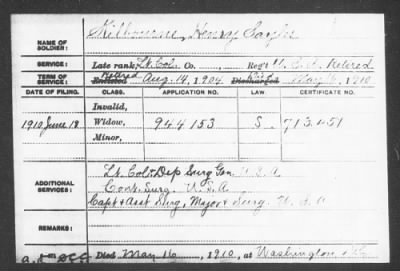 NAME OF SOLDIER: Kilbourne, Henry Sayles
SERVICE: Late rank, Lt. Col. Co. , Reg't U.S.A. Retired
TERM OF SERVICE: Retired Enlisted Aug. 14, 1904 Discharged Died May 16, 1910
DATE OF FILING. CLASS. APPLICATION NO. LAW. CERTIFICATE NO.
Invalid,
1910 June 18 Widow, 944153 S. 713451
Minor,
ADDITIONAL SERVICES: Lt. Col & Dep Surg Gen U.S.A
Cont. Surg. U.S.A
Capt & Asst Surg, Major & Surg. U.S.A
REMARKS:
Died May 16, 1910, at Washington